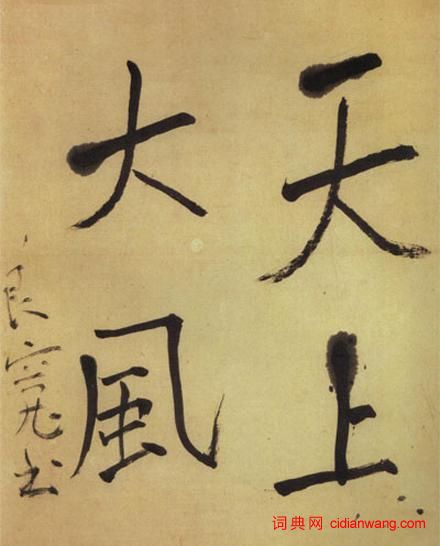 天上
大風
良寛書
词典网 cidianwang.com